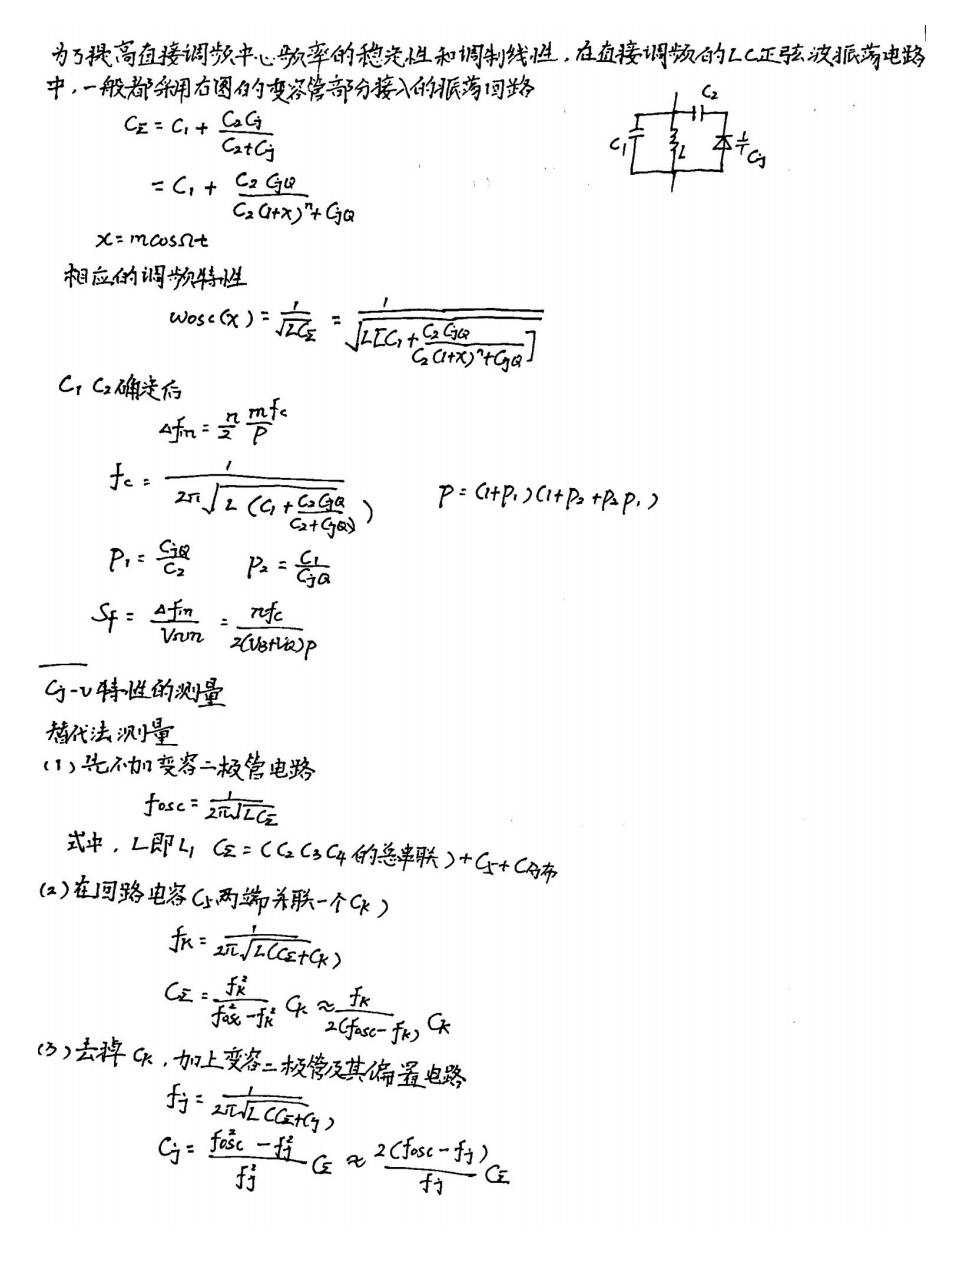 为了提高直接调频中心频率的稳定性和调制线性，在直接调频的LC正弦波振荡电路
中，一般都采用右图的变容管部分接入的振荡回路
CΣ = C₁ + C₂Cj/(C₂+Cj)
= C₁ + C₂CjQ/(C₂(1+x)ⁿ+CjQ)
C₁ L C₂ Cj
x = mcosΩt
相应的调频特性
ωosc(x) = 1/√(LCΣ) = 1/√(L[C₁+C₂CjQ/(C₂(1+x)ⁿ+CjQ)])
C₁ C₂确定后
Δfm = n/2 mfc/P
fc = 1/(2π√(L(C₁+C₂CjQ/(C₂+CjQ)))) P=(1+P₁)(1+P₂+P₂P₁)
P₁ = CjQ/C₂ P₂ = C₁/CjQ
Sf = Δfm/VΩm = nfc/(2(VB+VQ)P)
Cj-v特性的测量
替代法测量
(1)先不加变容二极管电路
fosc = 1/(2π√(LCΣ))
式中，L即L₁ CΣ=(C₂C₃C₄的总串联)+C₅+C分布
(2)在回路电容C₅两端并联一个CK)
fK = 1/(2π√(L(CΣ+CK)))
CΣ = fK²/(fosc²-fK²) CK ≈ fK/(2(fosc-fK)) CK
(3)去掉CK，加上变容二极管及其偏置电路
fj = 1/(2π√(L(CΣ+Cj)))
Cj = (fosc²-fj²)/fj² CΣ ≈ 2(fosc-fj)/fj CΣ